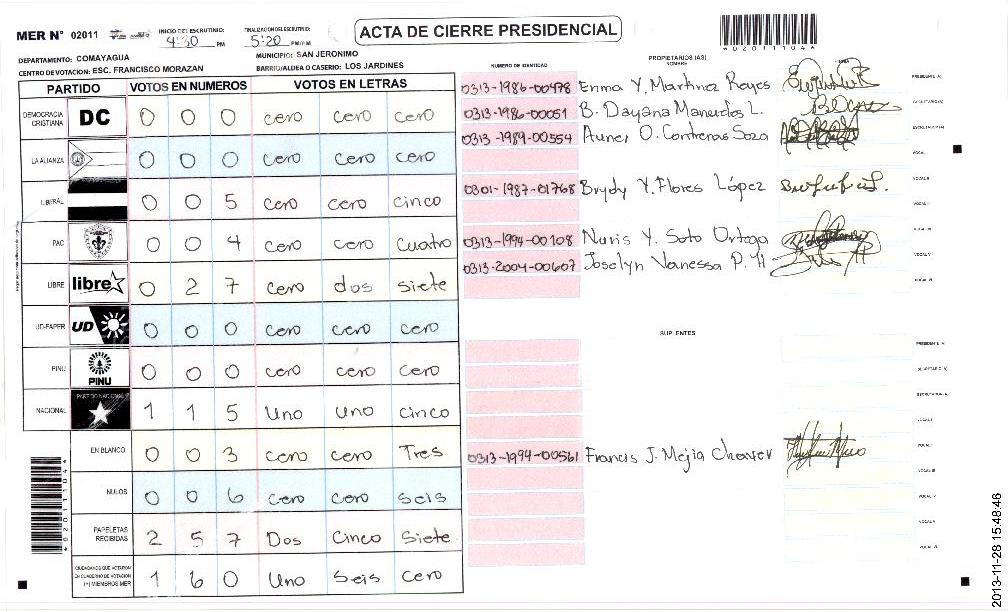 MER N° 02011
INICIO DEL ESCRUTINIO: 4:30 PM
FINALIZACION DEL ESCRUTINIO: 5:20 PM
ACTA DE CIERRE PRESIDENCIAL
*02011104*
DEPARTAMENTO: COMAYAGUA
MUNICIPIO: SAN JERONIMO
CENTRO DE VOTACION: ESC. FRANCISCO MORAZAN
BARRIO/ALDEA O CASERIO: LOS JARDINES
PARTIDO VOTOS EN NUMEROS VOTOS EN LETRAS
DEMOCRACIA CRISTIANA DC 0 0 0 cero cero cero
LA ALIANZA 0 0 0 cero cero cero
LIBERAL 0 0 5 cero cero cinco
PAC 0 0 4 cero cero cuatro
LIBRE libre 0 2 7 cero dos siete
UD-FAPER UD 0 0 0 cero cero cero
PINU PINU 0 0 0 cero cero cero
NACIONAL PARTIDO NACIONAL 1 1 5 Uno Uno cinco
EN BLANCO 0 0 3 cero cero Tres
NULOS 0 0 6 cero cero seis
PAPELETAS RECIBIDAS 2 5 7 Dos Cinco Siete
CIUDADANOS QUE VOTARON EN CUADERNO DE VOTACION (+) MIEMBROS MER 1 6 0 Uno Seis Cero
*02011104*
NUMERO DE IDENTIDAD PROPIETARIOS (AS) NOMBRE FIRMA
0313-1986-00478 Enma Y, Martinez Reyes PRESIDENTE (A)
0313-1986-00051 B. Dayana L. SECRETARIO (A)
0313-1989-00554 Auner O. Contreras Soza ESCRUTADOR (A)
VOCAL I
0301-1987-01768 Brydy Y. Flores López VOCAL II
VOCAL III
0313-1994-00108 Nuris Y. Soto Ortega VOCAL IV
0313-2004-00607 Joselyn Vanessa P. H VOCAL V
VOCAL VI
SUPLENTES
PRESIDENTE (A)
SECRETARIO (A)
ESCRUTADOR (A)
VOCAL I
0313-1994-00561 Francis J. Mejia VOCAL II
VOCAL III
VOCAL IV
VOCAL V
VOCAL VI
2013-11-28 15:48:46